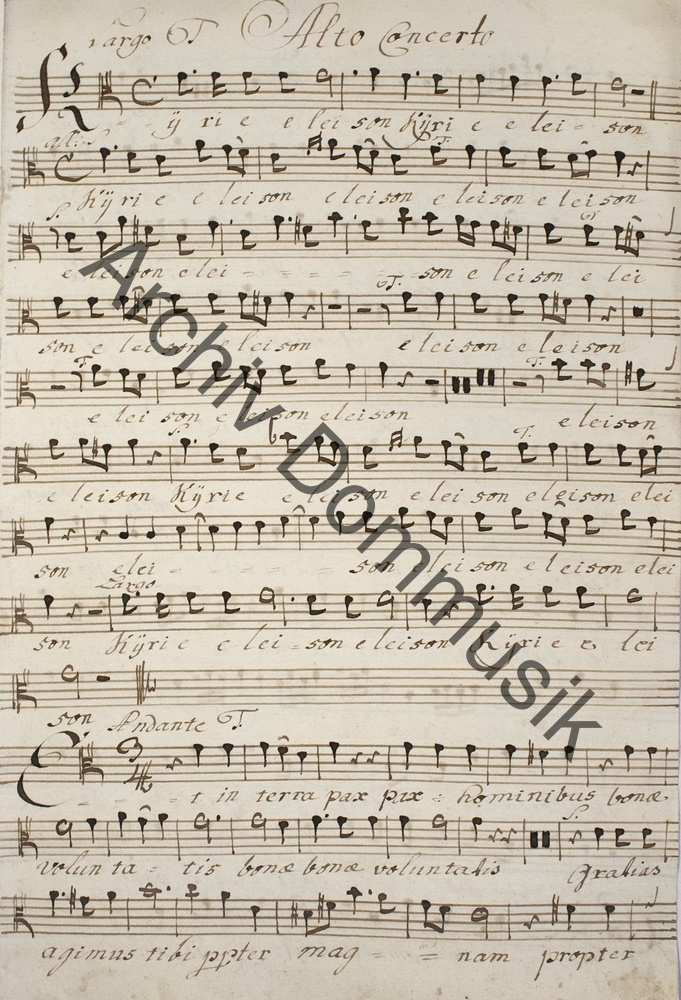 Largo T Alto Concerto
Kÿrie eleison Kÿrie elei - son
all: S T.
Kÿrie eleison eleison eleison eleison
S. T
eleison elei - - - - - son eleison elei
T.
son eleison eleison eleison eleison
T. T.
eleison eleison eleison eleison
S. T.
eleison Kÿrie eleison eleison eleison elei
son elei - - - - - son eleison eleison elei
Largo
son Kÿrie elei - son eleison Kÿrie elei
son
Andante T.
Et in terra pax pax - hominibus bonæ
S.
volunta - tis bonæ bonæ voluntatis Gratias
agimus tibi ppter mag - - nam propter
Archiv Dommusik